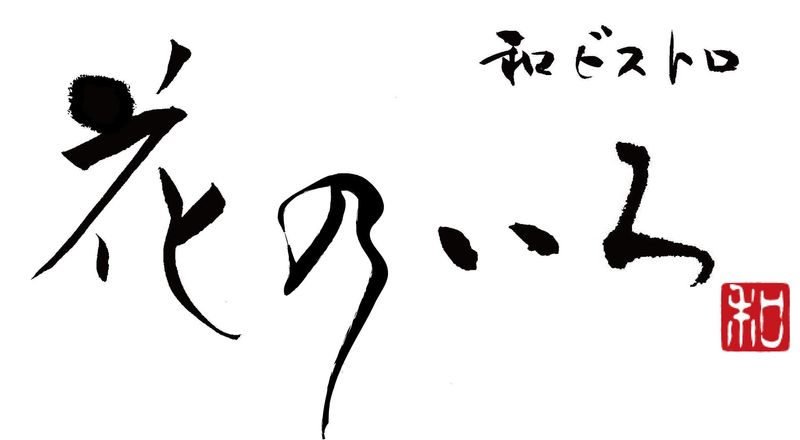 和ビストロ
花のいろ
和